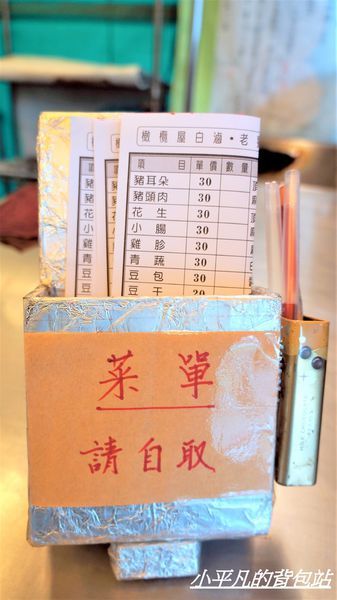 橄欖屋白滷·老
項 目 單價 數量
豬耳朵 30
豬頭肉 30
花生 30
小腸 30
雞胗 30
青蔬 30
豆包 30
豆干 20
菜單
請自取
小平凡的背包站